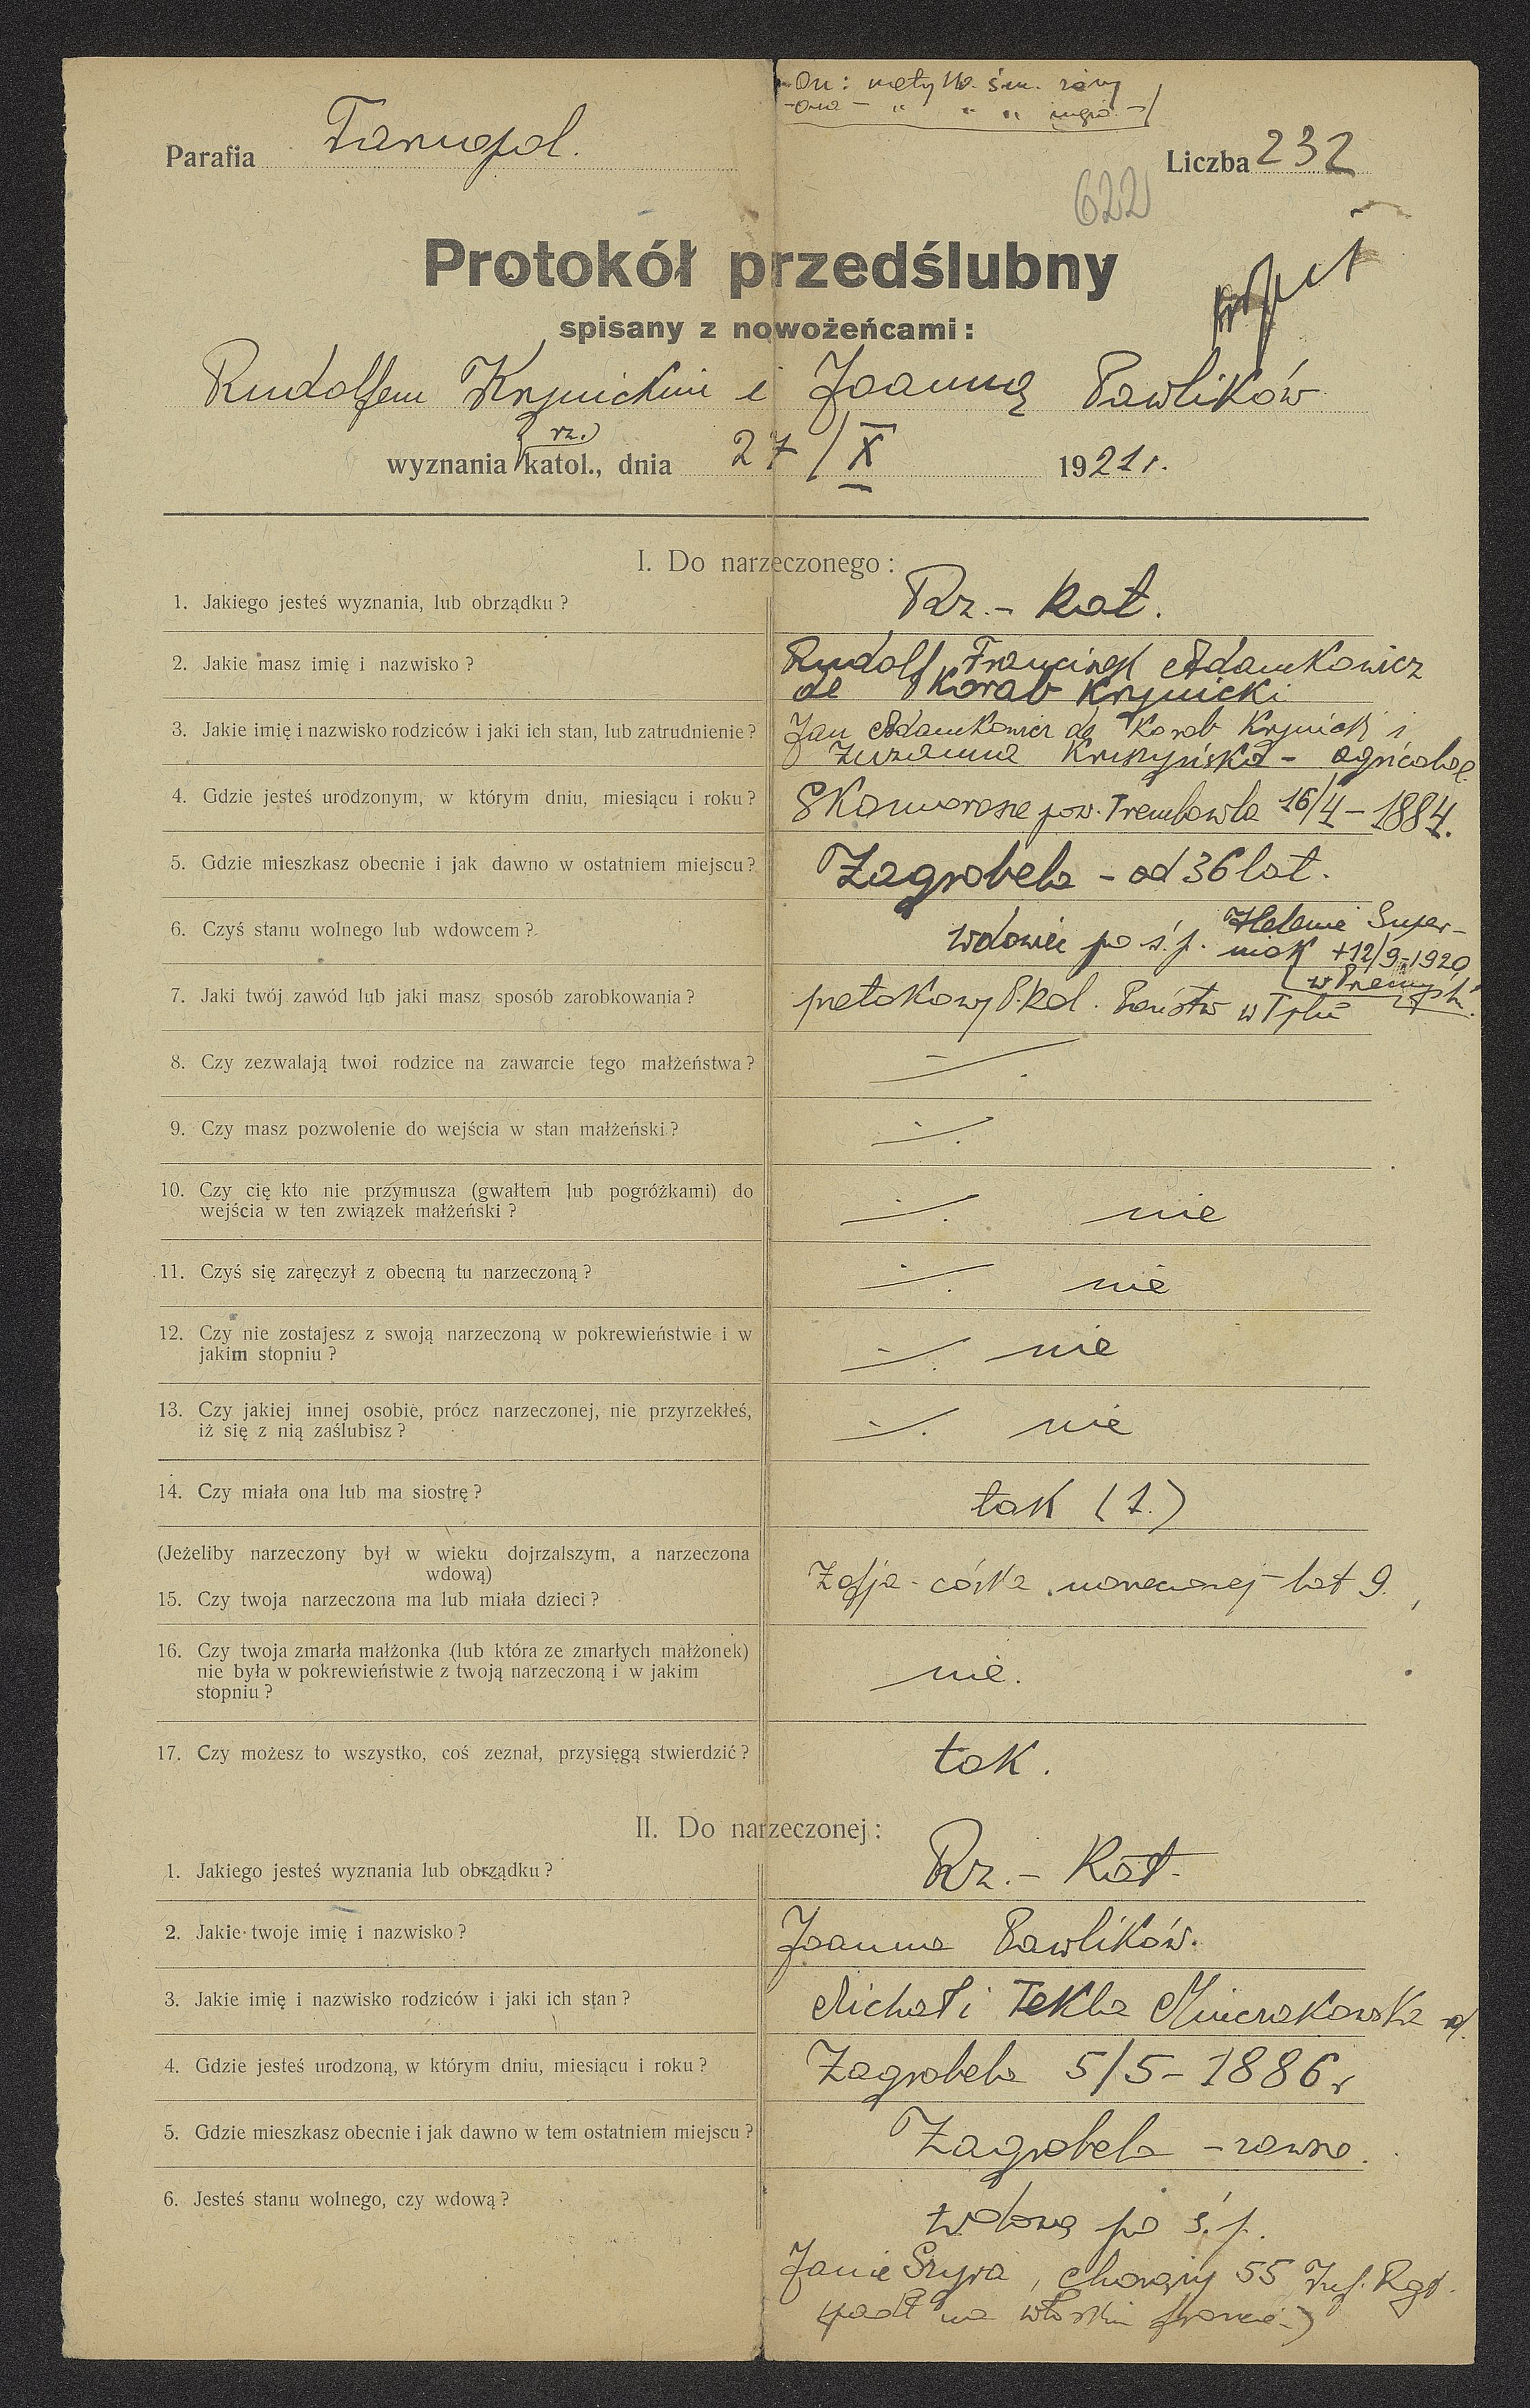 On: metr. śm. żony
- ona - " " " męża -
Parafia Tarnopol.
Liczba 232
622
Protokół przedślubny
spisany z nowożeńcami:
Rudolfem Krynickim i Joanną Pawlików
wyznania (rz.) katol., dnia 27/X 1921 r.
I. Do narzeczonego:
1. Jakiego jesteś wyznania, lub obrządku? Rz.- kat.
2. Jakie masz imię i nazwisko? Rudolf Franciszek Adamkowicz
de Korab Krynicki
3. Jakie imię i nazwisko rodziców i jaki ich stan, lub zatrudnienie? Jan Adamkowicz de Korab Krynicki i
Zuzanna Kruszyńska - agricolae
4. Gdzie jesteś urodzonym, w którym dniu, miesiącu i roku? Skomorosze pow. Trembowla 16/4 - 1884.
5. Gdzie mieszkasz obecnie i jak dawno w ostatniem miejscu? Zagrobela - od 36 lat.
6. Czyś stanu wolnego lub wdowcem? wdowiec po ś.p. Helenie Super-
niak +12/9-1920
(w Przemyślu)
7. Jaki twój zawód lub jaki masz sposób zarobkowania? przetokowy P. kol. Państw w Tplu
8. Czy zezwalają twoi rodzice na zawarcie tego małżeństwa? -/.
9. Czy masz pozwolenie do wejścia w stan małżeński? -/.
10. Czy cię kto nie przymusza (gwałtem lub pogróżkami) do
wejścia w ten związek małżeński? -/. nie
11. Czyś się zaręczył z obecną tu narzeczoną? -/. nie
12. Czy nie zostajesz z swoją narzeczoną w pokrewieństwie i w
jakim stopniu? -/. nie
13. Czy jakiej innej osobie, prócz narzeczonej, nie przyrzekłeś,
iż się z nią zaślubisz? -/. nie
14. Czy miała ona lub ma siostrę? tak (1.)
(Jeżeliby narzeczony był w wieku dojrzalszym, a narzeczona
wdową)
15. Czy twoja narzeczona ma lub miała dzieci? Zofja - córka narzeczonej - lat 9.
16. Czy twoja zmarła małżonka (lub która ze zmarłych małżonek)
nie była w pokrewieństwie z twoją narzeczoną i w jakim
stopniu? nie.
17. Czy możesz to wszystko, coś zeznał, przysięgą stwierdzić? tak.
II. Do narzeczonej:
1. Jakiego jesteś wyznania lub obrządku? Rz.- Kat.
2. Jakie twoje imię i nazwisko? Joanna Pawlików.
3. Jakie imię i nazwisko rodziców i jaki ich stan? Michał i Tekla
4. Gdzie jesteś urodzoną, w którym dniu, miesiącu i roku? Zagrobela 5/5 - 1886 r
5. Gdzie mieszkasz obecnie i jak dawno w tem ostatniem miejscu? Zagrobela - zawsze.
6. Jesteś stanu wolnego, czy wdową? wdową po ś.p.
Janie Szyra, chorąży 55 Inf. Rgt.
(padł na włoskim froncie)